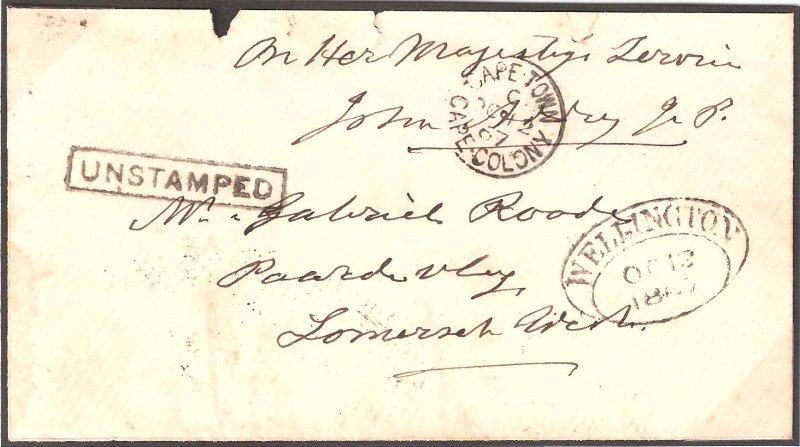 On Her Majesty's Service
CAPE·TOWN
C
OC 12
67
CAPE·COLONY
John J. P.
UNSTAMPED
Mr. Gabriel Roode
Paarde Vley
Somerset West.
WELLINGTON
OC 12
1867